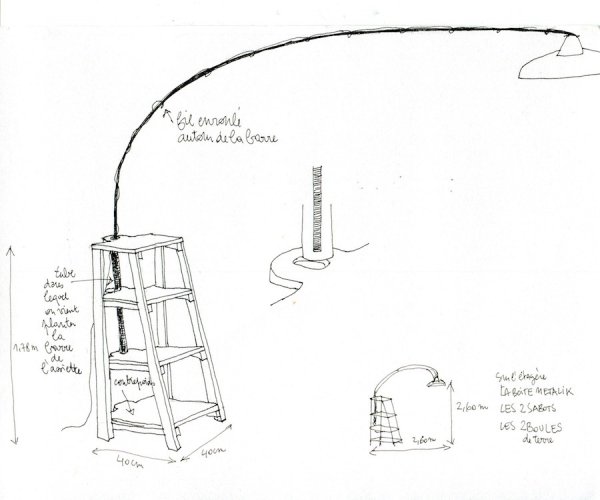 fil enroulé
autour de la barre
tube
dans
lequel
on vient
planter
la
barre
de
l'assiette
1,78m
contrepoids
40cm
40cm
2,60m
2,60m
Sur l'étagère
LA BOÎTE METALIK
LES 2 SABOTS
LES 2 BOULES
de terre